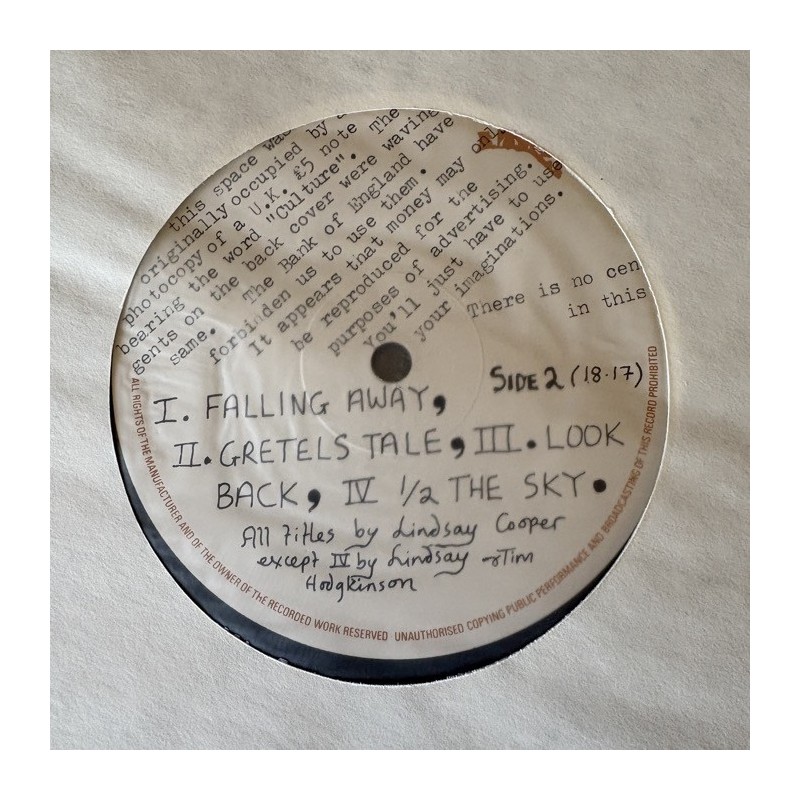 this space was
originally occupied by a
photocopy of a U.K. £5 note
bearing the word "Culture". The
gents on the back cover were waving
same. The Bank of England have
forbidden us to use them.
It appears that money may only
be reproduced for the
purposes of advertising.
You'll just have to use
your imaginations.
There is no cen
in this
SIDE 2 (18.17)
I. FALLING AWAY,
II. GRETELS TALE, III. LOOK
BACK, IV 1/2 THE SKY.
All titles by Lindsay Cooper
except IV by Lindsay & Tim
Hodgkinson
ALL RIGHTS OF THE MANUFACTURER AND OF THE OWNER OF THE RECORDED WORK RESERVED UNAUTHORISED COPYING PUBLIC PERFORMANCE AND BROADCASTING OF THIS RECORD PROHIBITED